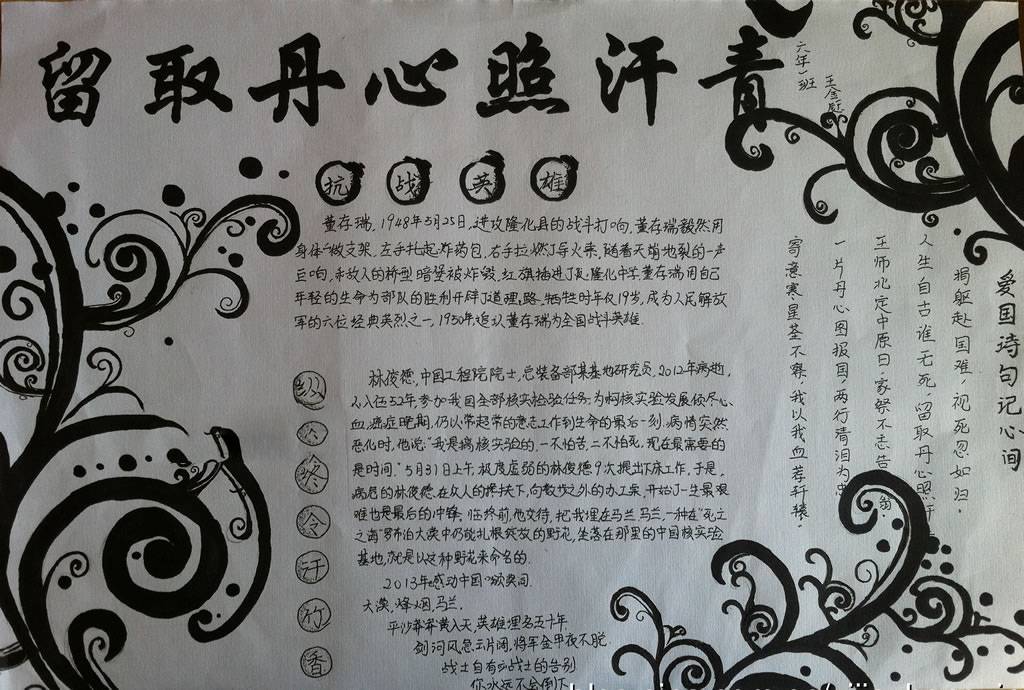 留取丹心照汗青
六年一班
王金
抗战英雄
董存瑞,1948年5月25日,进攻隆化县的战斗打响,董存瑞毅然用
身体做支架,左手托起炸药包,右手拉燃了导火索,随着天崩地裂的一声
巨响,敌人的桥型暗堡被炸毁,红旗插进了隆化中学,董存瑞用自己
年轻的生命为部队的胜利开辟了道理路,牺牲时年仅19岁,成为人民解放
军的六位经典英烈之一,1950年追认董存瑞为全国战斗英雄.
纵
终
令
汗
竹
香
林俊德,中国工程院院士,总装备部某基地研究员,2012年病逝,
入伍52年,参加我国全部核实验任务,为核实验发展倾尽心
血,癌症晚期,仍以超常的意志工作到生命的最后一刻.病情突然
恶化时,他说:"我是搞核实验的,一不怕苦,二不怕死,现在最需要的
是时间."5月31日上午,极度虚弱的林俊德9次提出下床工作,于是,
病危的林俊德,在众人的搀扶下,向数步之外的办工桌,开始了一生最艰
难也是最后的冲锋,临终前,他交待,把我埋在马兰.马兰,一种在"死亡
之海"罗布泊大漠中仍能扎根绽放的野花,坐落在那里的中国核实验
基地,就是以这种野花来命名的.
2013年感动中国"颁奖词
大漠,烽烟,马兰.
平沙莽莽黄入天,英雄埋名五十年
剑河风急云片阔,将军金甲夜不脱
战士自有战士的告别
你永远不会倒下
爱国诗句记心间
捐躯赴国难,视死忽如归.
人生自古谁无死,留取丹心照汗
王师北定中原日,家祭不忘告 翁
一片丹心图报国,两行清泪为忠
寄意寒星荃不察,我以我血荐轩辕.